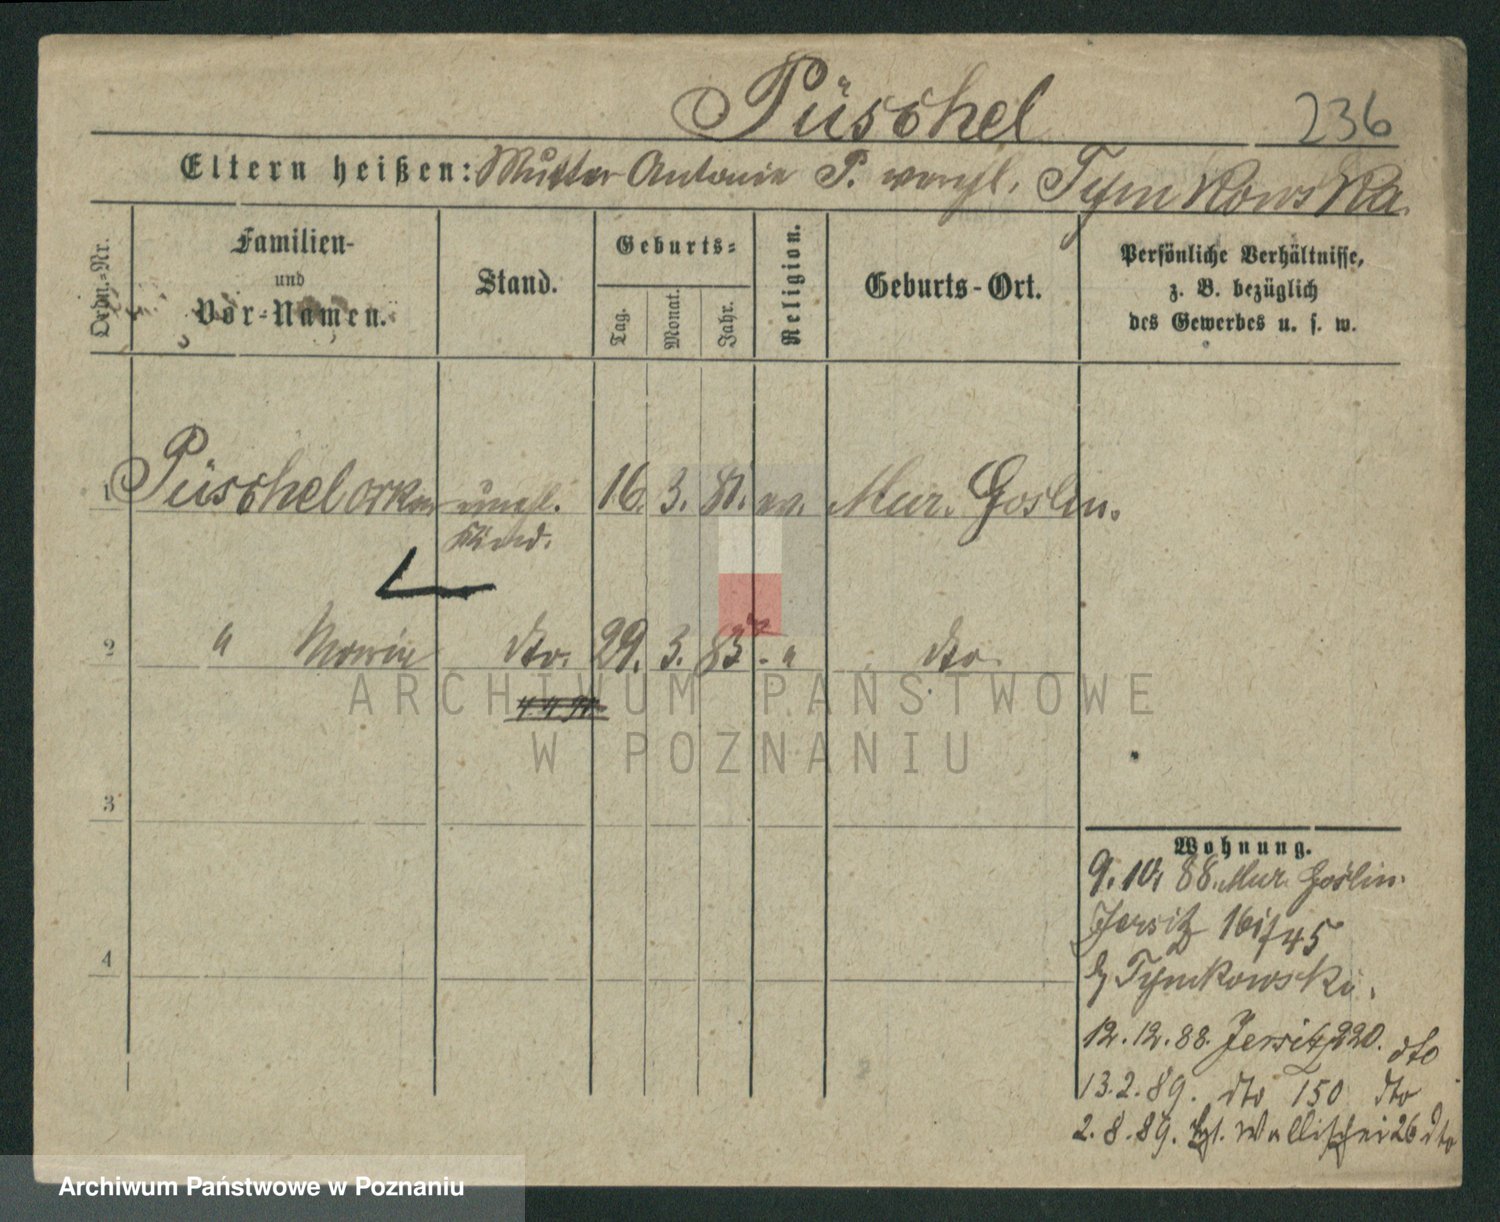 Püschel
236
Eltern heißen: Mutter Antonie P. verehl. Tymkowska.
Ordn.-Nr.
Familien-
und
Vor-Namen.
Stand.
Geburts-
Tag.
Monat.
Jahr.
Religion.
Geburts-Ort.
Persönliche Verhältnisse,
z. B. bezüglich
des Gewerbes u. s. w.
1 Püschel unehl. 16. 3. 81. ev. Mur. Goslin.
Kind.
2 " dto. 29. 3. 83 - " dto.
3
4
Wohnung.
9. 10. 88. Mur. Goslin.
Jersitz 161/45
b/ Tymkowski.
12. 12. 88. Jersitz 220. dto
13. 2. 89. dto 150 dto
2. 8. 89. Wallischei 26 dto
ARCHIWUM PAŃSTWOWE
W POZNANIU
Archiwum Państwowe w Poznaniu